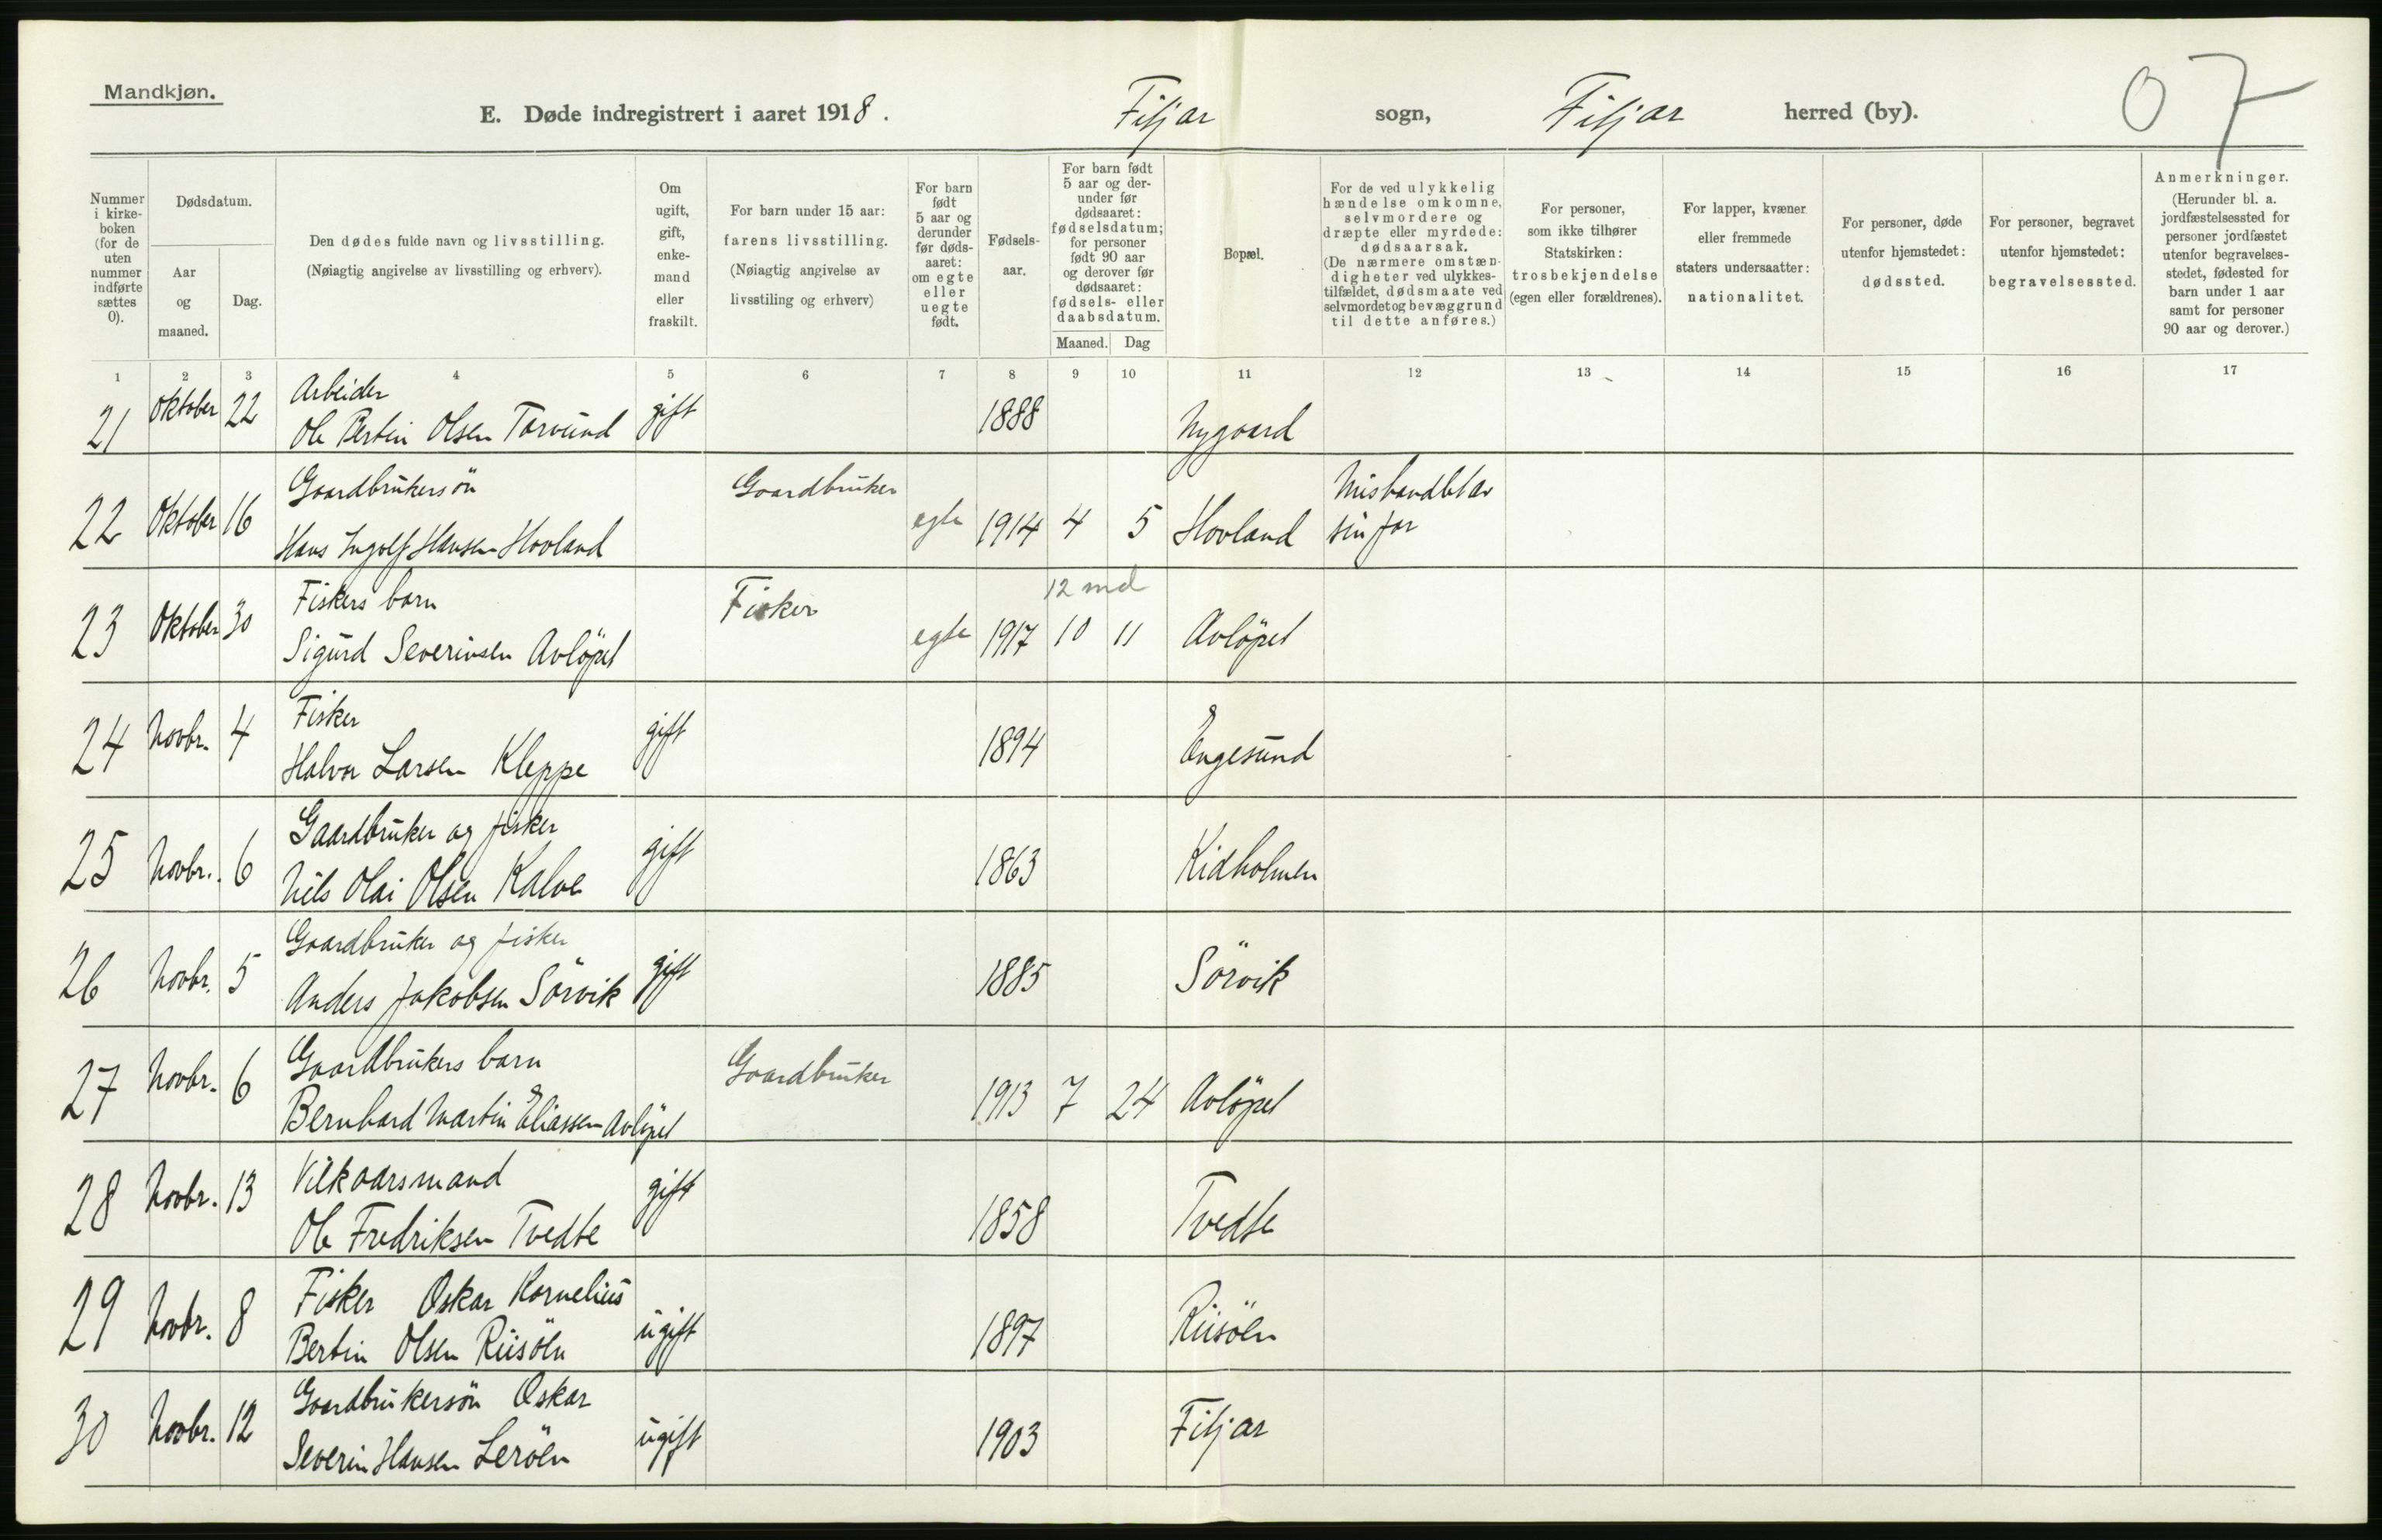 Mandkjøn.
E. Døde indregistrert i aaret 1918. Fitjar sogn, Fitjar herred (by). 07
Nummer i kirke- boken (for de uten nummer indførte sættes 0).
Dødsdatum.
Aar og maaned.
Dag.
Den dødes fulde navn og livsstilling.
(Nøiagtig angivelse av livsstilling og erhverv).
Om ugift, gift, enke- mand eller fraskilt.
For barn under 15 aar:
farens livsstilling.
(Nøiagtig angivelse av
livsstiling og erhverv)
For barn født 5 aar og derunder før døds- aaret: om egte eller uegte født.
Fødsels- aar.
For barn født 5 aar og der- under før dødsaaret: fødselsdatum; for personer født 90 aar og derover før dødsaaret: fødsels- eller daabsdatum.
Maaned. Dag
Bopæl.
For de ved ulykkelig hændelse omkomne, selvmordere og dræpte eller myrdede: dødsaarsak. (De nærmere omstæn- digheter ved ulykkes- tilfældet, dødsmaate ved selvmordet og bevæggrund til dette anføres.)
For personer, som ikke tilhører Statskirken: trosbekjendelse (egen eller forældrenes).
For lapper, kvæner eller fremmede staters undersaatter: nationalitet.
For personer, døde utenfor hjemstedet: dødssted.
For personer, begravet utenfor hjemstedet: begravelsessted.
Anmerkninger. (Herunder bl. a. jordfæstelsessted for personer jordfæstet utenfor begravelses- stedet, fødested for barn under 1 aar samt for personer 90 aar og derover.)
1 2 3 4 5 6 7 8 9 10 11 12 13 14 15 16 17
Arbeider
21 Oktober 22 Ole Bertin Olsen Tarvund gift 1888 Nygaard
Gaardbrukersön Gaardbruker Mishandlet av
22 Oktober 16 Hans Ingolf Hansen Hovland egte 1914 4 5 Hovland sin far
Fiskers barn Fisker 12 md
23 Oktober 30 Sigurd Severinsen Avlöpet egte 1917 10 11 Avlöpet
Fisker
24 Novbr. 4 Halvor Larsen Kleppe gift 1894 Engesund
Gaardbruker og fisker
25 Novbr. 6 Nils Olai Olsen Kalve gift 1863 Kidholmen
Gaardbruker og fisker
26 Novbr. 5 Anders Jakobsen Sörvik gift 1885 Sörvik
Gaardbrukers barn Gaardbruker
27 Novbr. 6 Bernhard Martin Eliassen Avlöpet 1913 7 24 Avlöpet
Vilkaarsmand
28 Novbr. 13 Ole Fredriksen Tvedte gift 1858 Tvedte
Fisker Oskar Kornelius
29 Novbr. 8 Bertin Olsen Riisöen ugift 1897 Riisöen
Gaardbrukersön Oskar
30 Novbr. 12 Severin Hansen Leröen ugift 1903 Fitjar